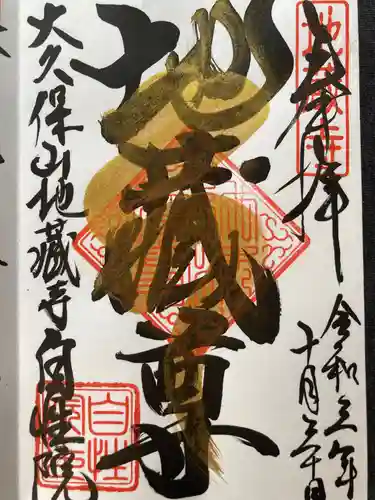 奉拝
令和年
十月十日
地蔵尊
大久保山地蔵寺自性院
地蔵寺